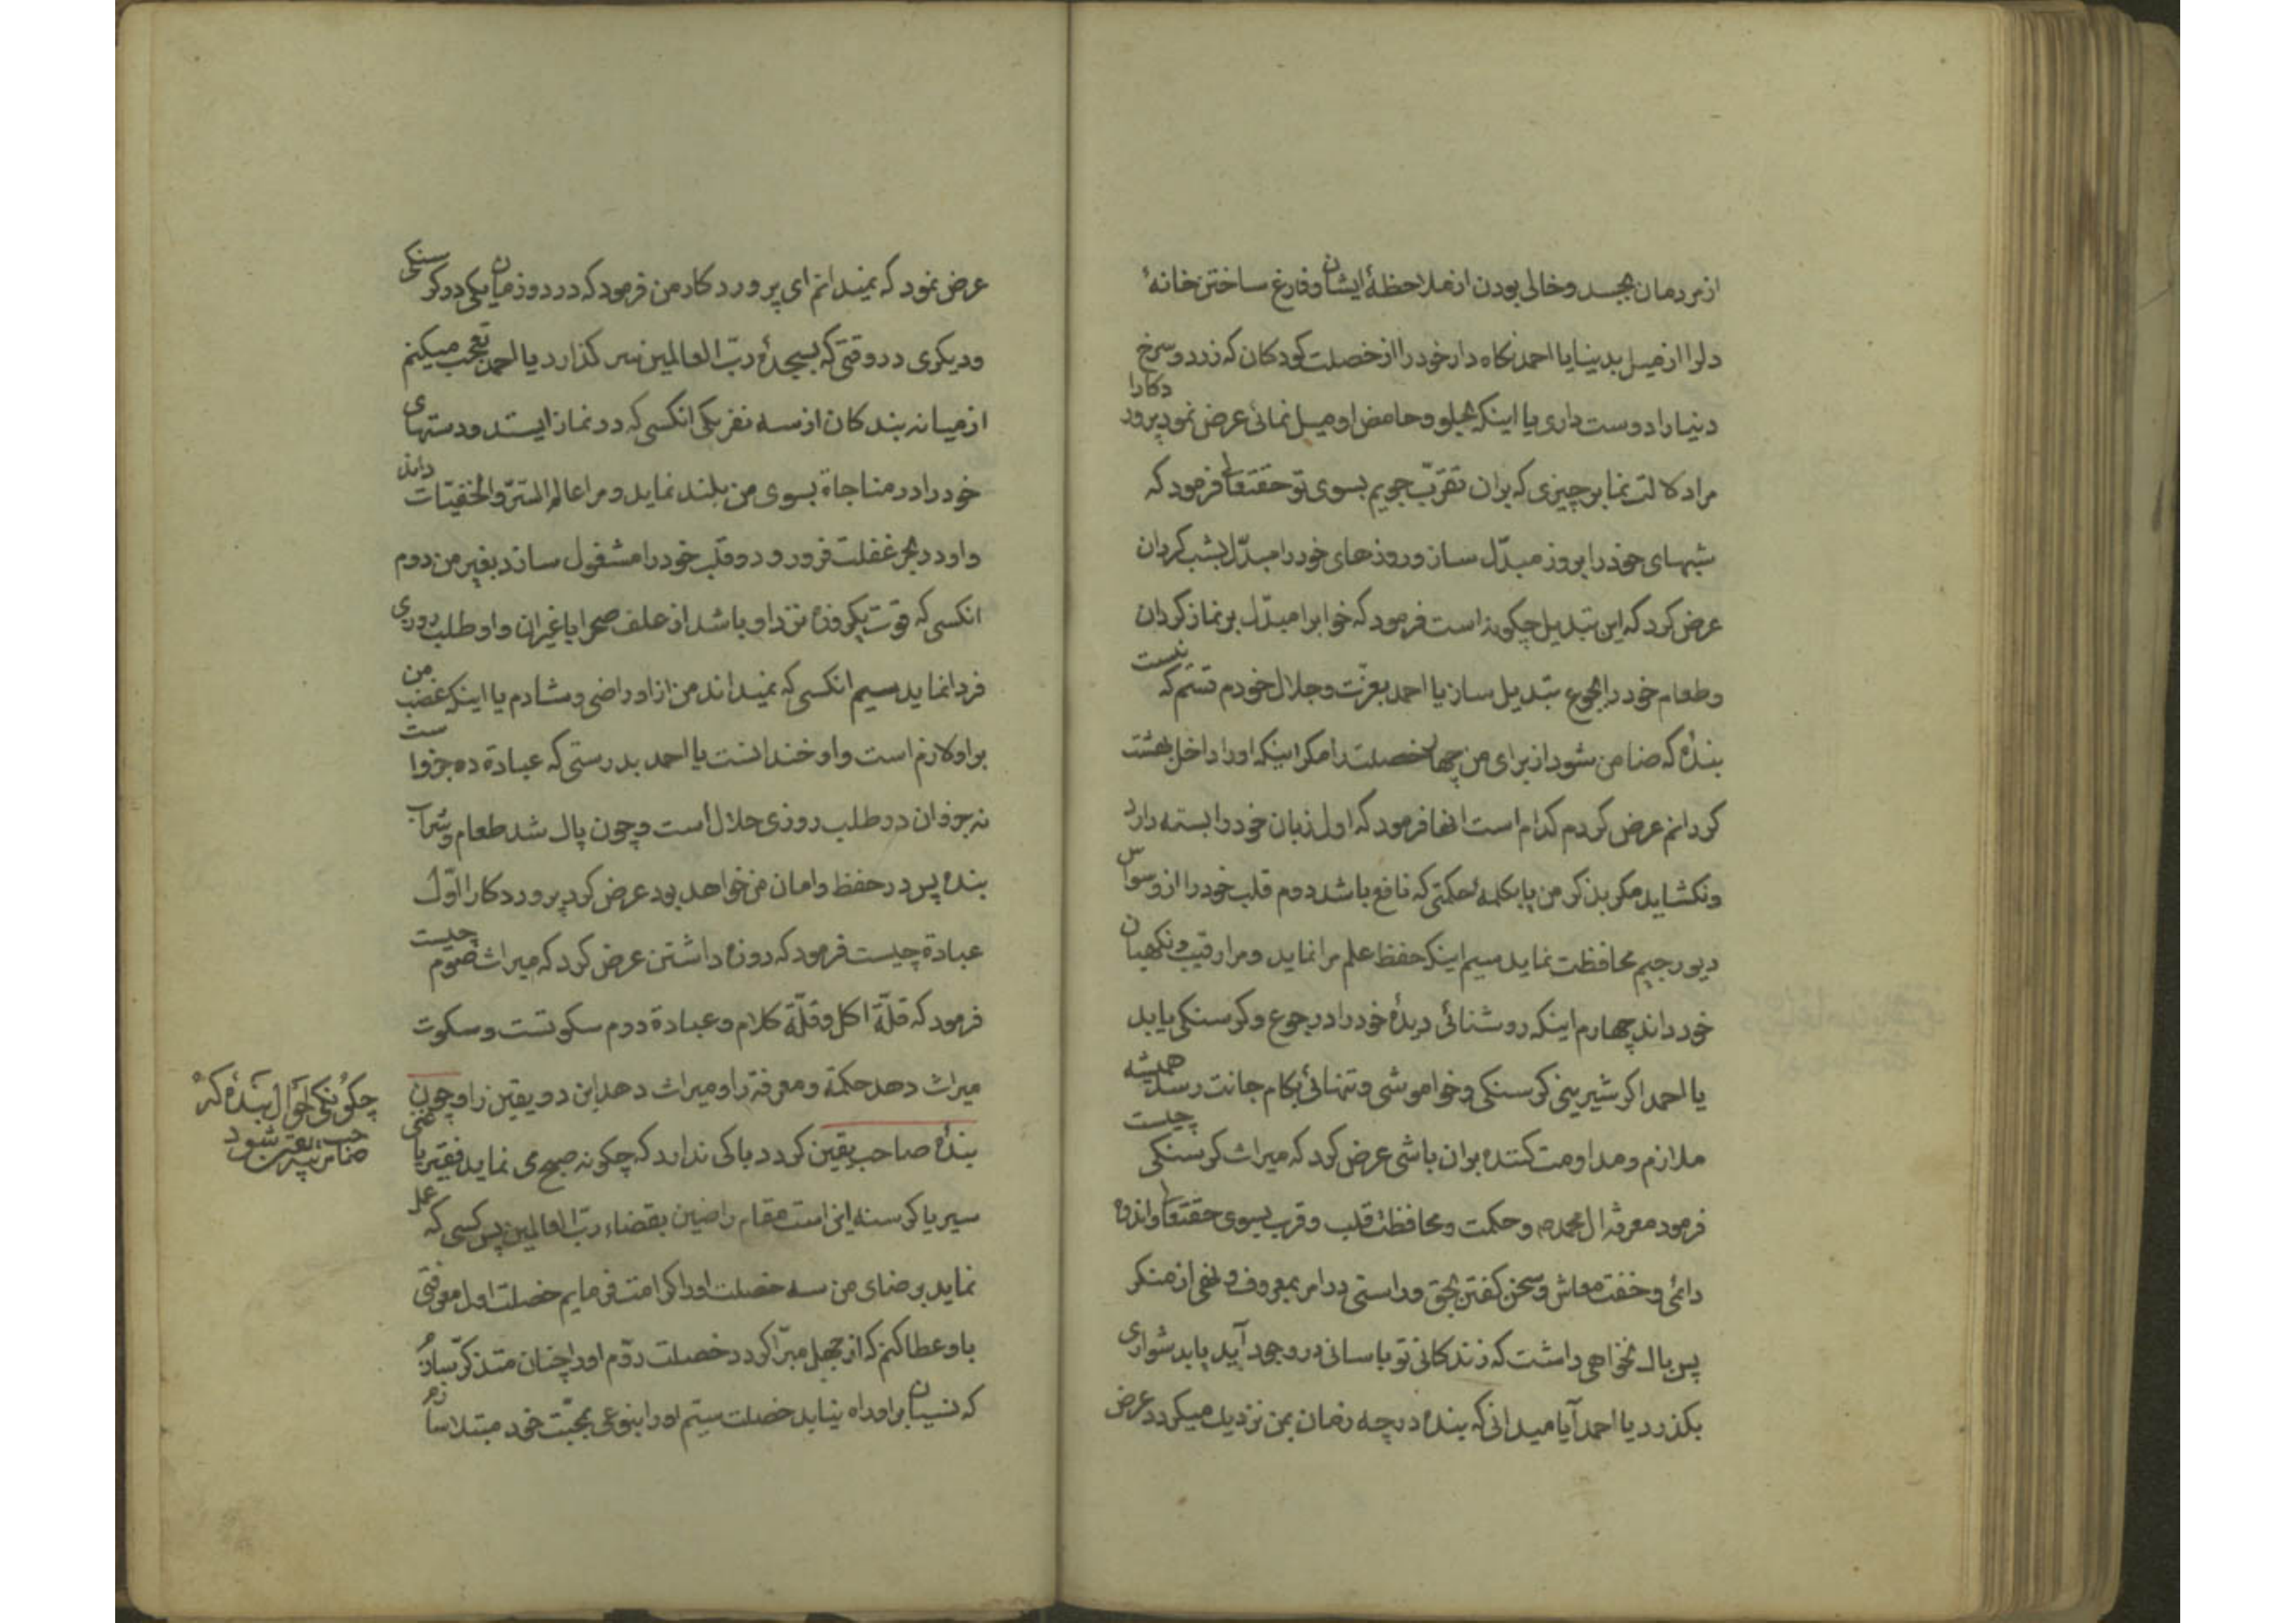 از مردمان بجسد و خالی بودن از ملاحظهٔ ایشان و فارغ ساختن خانهٔ
دلرا از میل بدنیا یا احمد نکاه دار خود را از خصلت کودکان که زرد و سرخ
دنیا را دوست داری یا اینکه بحلو و حامض او میل نمائی عرض نمود پروردکارا
مرا دلالت نما بر چیزی که بران تقرّب جویم بسوی تو حقتعالی فرمود که
شبهای خود را بروز مبدّل ساز و روزهای خود را مبدّل بشب کردان
عرض کرد که این تبدیل چکونه است فرمود که خوابرا مبدّل بر نماز کردان
و طعام خود را بجوع تبدیل ساز یا احمد بعزّت و جلال خودم قسم که نیست
بندهٔ که ضامن شود از برای من چهار خصلت را مکر اینکه او را داخل بهشت
کردانم عرض کردم کدام است انها فرمود که اول زبان خود را بسته دارد
و نکشاید مکر بذکر من یا بکلمهٔ حکمتی که نافع باشد دوم قلب خود را از وسواس
دیو رجیم محافظت نماید سیم اینکه حفظ علم مرا نماید و مرا رقیب و نکهبان
خود داند چهارم اینکه روشنائی دیدهٔ خود را در جوع و کرسنکی یابد
یا احمد اکر شیرینی کرسنکی و خواموشی و تنهائی بکام جانت رسد همیشه
ملازم و مداومت کننده بران باشی عرض کرد که میراث کرسنکی چیست
فرمود معرفة ال محمدم و حکمت و محافظت قلب و قرب بسوی حقتعالی و اندوه
دائمی و خفت معاش و سخن کفتن بحق و راستی در امر بمعروف و نهی از منکر
پس باک نخواهی داشت که زندکانی تو باسانی در وجود آید یا بدشواری
بکذرد یا احمد آیا میدانی که بنده در چه زمان بمن نزدیک میکردد عرض
عرض نمود که نمیدانم ای پروردکار من فرمود که در دو زمان یکی در کرسنکی
و دیکری در وقتی که بسجدهٔ ربّ العالمین سر کذارد یا احمد تعجب میکنم
از میانه بندکان از سه نفر یکی انکسی که در نماز ایستد و دستهای
خود را در مناجاة بسوی من بلند نماید و مرا عالم السّرّ و الخفیّات داند
و او در بحر غفلت فرو رود و قلب خود را مشغول سازد بغیر من دوم
انکسی که قوت یکروزه نزد او باشد از علف صحرا یا غیران و او طلب روزی
فردا نماید سیم انکسی که نمیداند من از او راضی و شادم یا اینکه غضب من
بر او لازم است و او خندانست یا احمد بدرستی که عبادة ده جزواست
نه جزو ان در طلب روزی حلال است و چون پاک شد طعام و شراب
بنده پس در حفظ و امان من خواهد بود عرض کرد پروردکارا اوّل
عبادة چیست فرمود که روزه داشتن عرض کرد که میراث صوم چیست
فرمود که قلّة اکل و قلّة کلام و عبادة دوم سکوتست و سکوت
میراث دهد حکمة و معرفة را و میراث دهد این دو یقین را و چون
بندهٔ صاحب یقین کردد باکی ندارد که چکونه صبح می نماید فقیر یا غنی
سیر یا کرسنه این است مقام راضین بقضاء ربّ العالمین پس کسی که عمل
نماید برضای من سه خصلت او را کرامت فرمایم خصلت اول معرفتی
باو عطا کنم که از جهل مبرّا کردد خصلت دوّم او را چنان متذکّر سازم
که نسیان بر او راه نیابد خصلت سیّم او را بنوعی بمحبّت خود مبتلا سازم
چکونکی احوال بندهٔ که
صاحب یقین شود